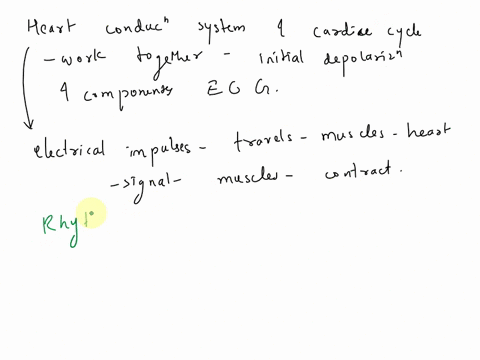 Heart conducⁿ system & cardiac cycle
- work together - initial depolarizⁿ
& components ECG.
electrical impulses - travels - muscles - heart
- signal - muscles - contract.
Rhyt